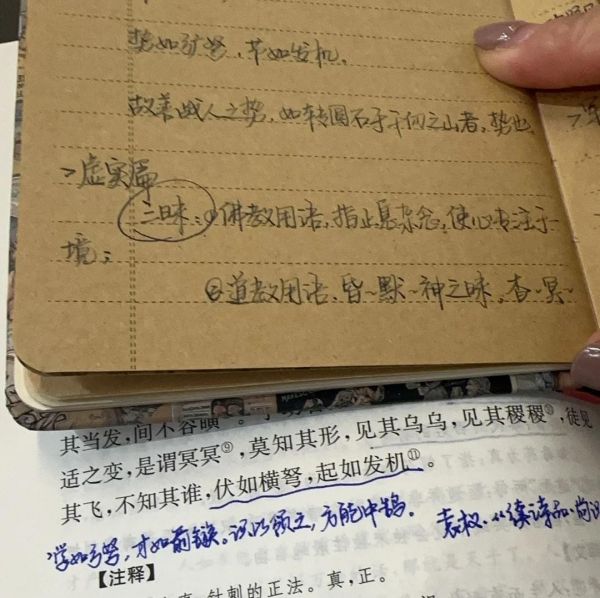 势如矿弩,节如发机。
故善战人之势,如转圆石于千仞之山者,势也
>虚实篇
三昧:①佛教用语,指止息杂念,使心专注于
境;
②道教用语,昏~默~神之昧,杳~冥~
其当发,间不容瞚
适之变,是谓冥冥⑨,莫知其形,见其乌乌,见其稷稷⑩,徒见
其飞,不知其谁,伏如横弩,起如发机⑪。
学如弓弩,才如箭镞。识以领之,方能中鹄。 袁枚《续诗品·尚识
【注释】
针刺的正法。真,正。